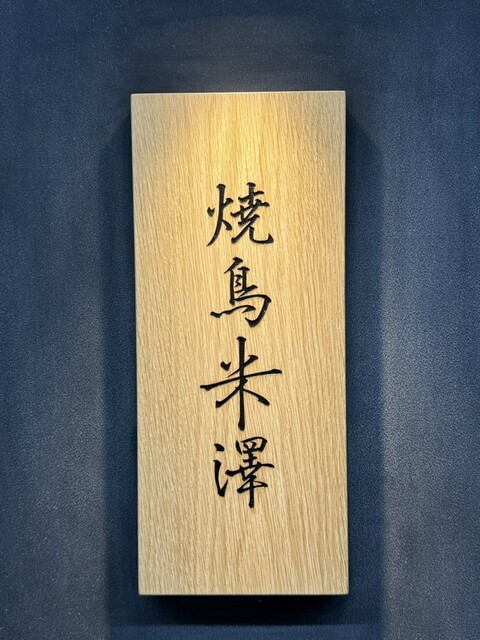 焼鳥米澤